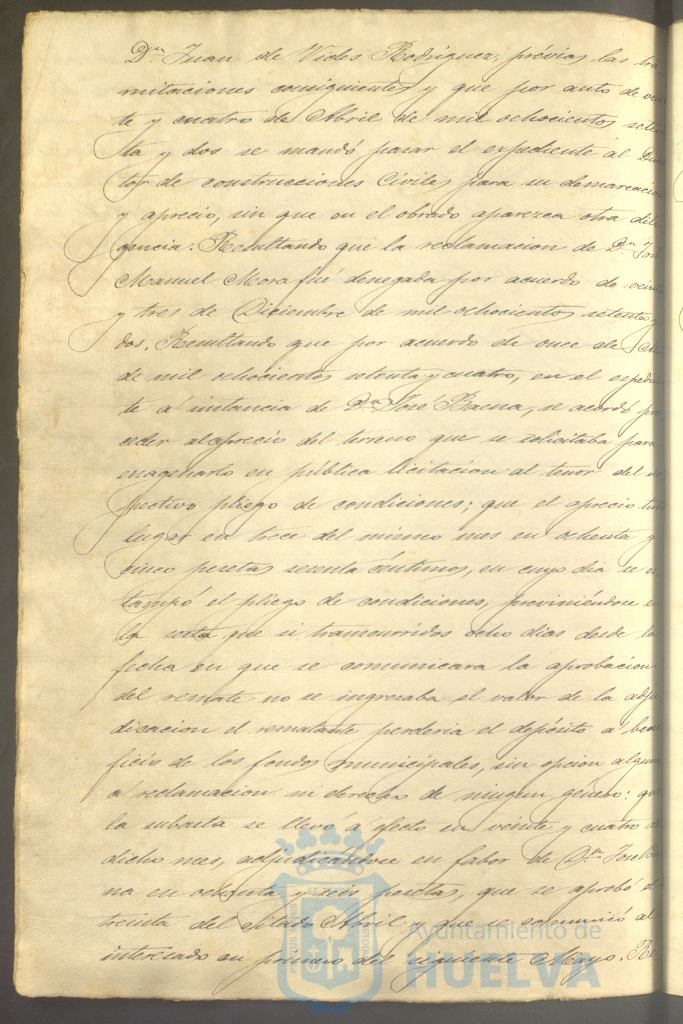 Dn. Juan de Vides Rodriguez, prévias las tra-
mitaciones consiguientes y que por auto de vein
te y cuatro de Abril de mil ochocientos seten
ta y dos se mandó pasar el expediente al Direc
tor de construcciones Civiles para su demarcacion
y aprecio, sin que en el obrado aparezca otra dili
gencia. Resultando que la reclamacion de Dn. José
Manuel Mora fué denegada por acuerdo de veinte
y tres de Diciembre de mil ochocientos setenta y
dos. Resultando que por acuerdo de once de
de mil ochocientos setenta y cuatro, en el expedien
te á instancia de Dn. José Baena, se acordó pro
ceder al aprecio del terreno que se solicitaba para
enagenarlo en pública licitacion al tenor del res
pectivo pliego de condiciones; que el aprecio tuvo
lugar en trece del mismo mes en ochenta y
cinco pesetas sesenta céntimos, en cuyo dia se es
tampó el pliego de condiciones, previniéndose en
la sesta que si transcurridos ocho dias desde la
fecha en que se comunicara la aprobacion
del remate no se ingresaba el valor de la adju
dicacion el rematante perderia el depósito á bene
ficio de los fondos municipales, sin opcion alguna
á reclamacion ni derecho de ningun género: que
la subasta se llevó á efecto en veinte y cuatro de
dicho mes, adjudicándose en fabor de Dn. José Bae
na en ochenta y seis pesetas, que se aprobó el
treinta del citado Abril y que se comunicó al
interesado en primero del siguiente Mayo. Re
Ayuntamiento de
HUELVA